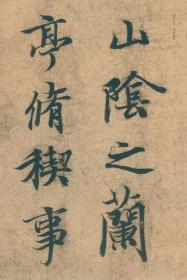 山陰之蘭
亭脩稧事